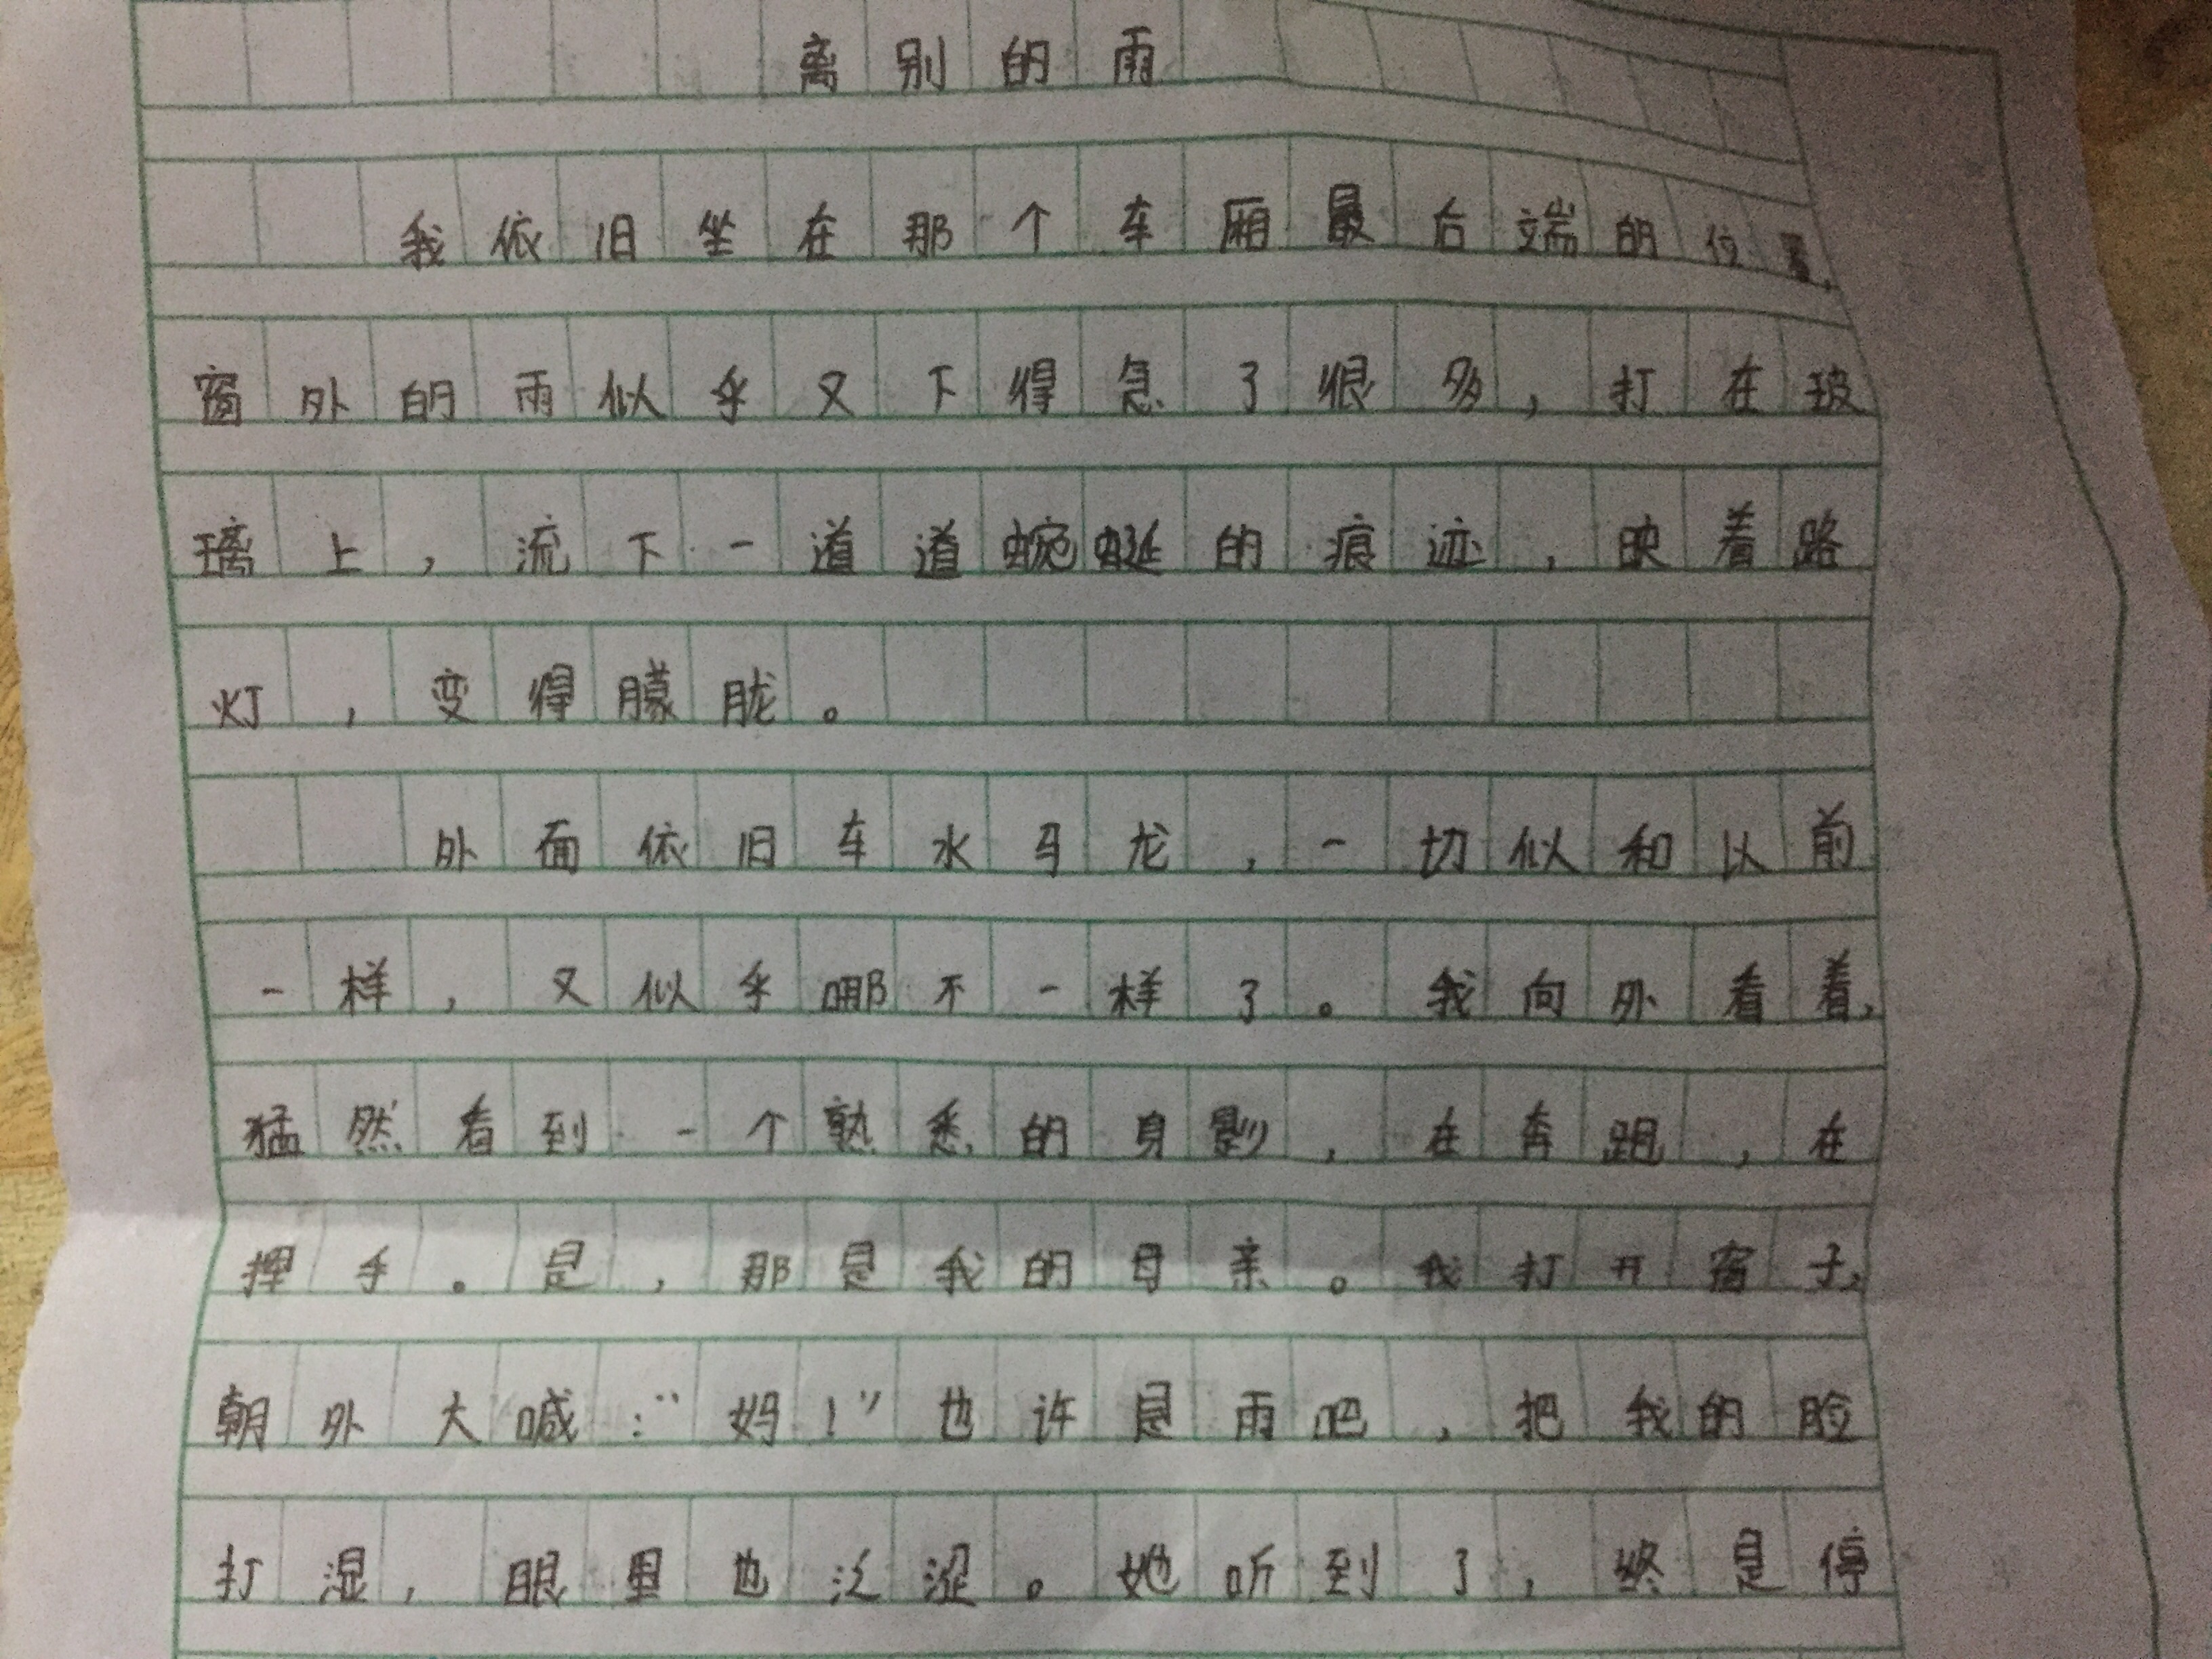 离别的雨
我依旧坐在那个车厢最后端的位置,
窗外的雨似乎又下得急了很多,打在玻
璃上,流下一道道蜿蜒的痕迹,映着路
灯,变得朦胧。
外面依旧车水马龙,一切似和以前
一样,又似乎哪不一样了。我向外看着,
猛然看到一个熟悉的身影,在奔跑,在
挥手。是,那是我的母亲。我打开窗子,
朝外大喊:“妈!”也许是雨吧,把我的脸
打湿,眼里也泛涩。她听到了,终是停